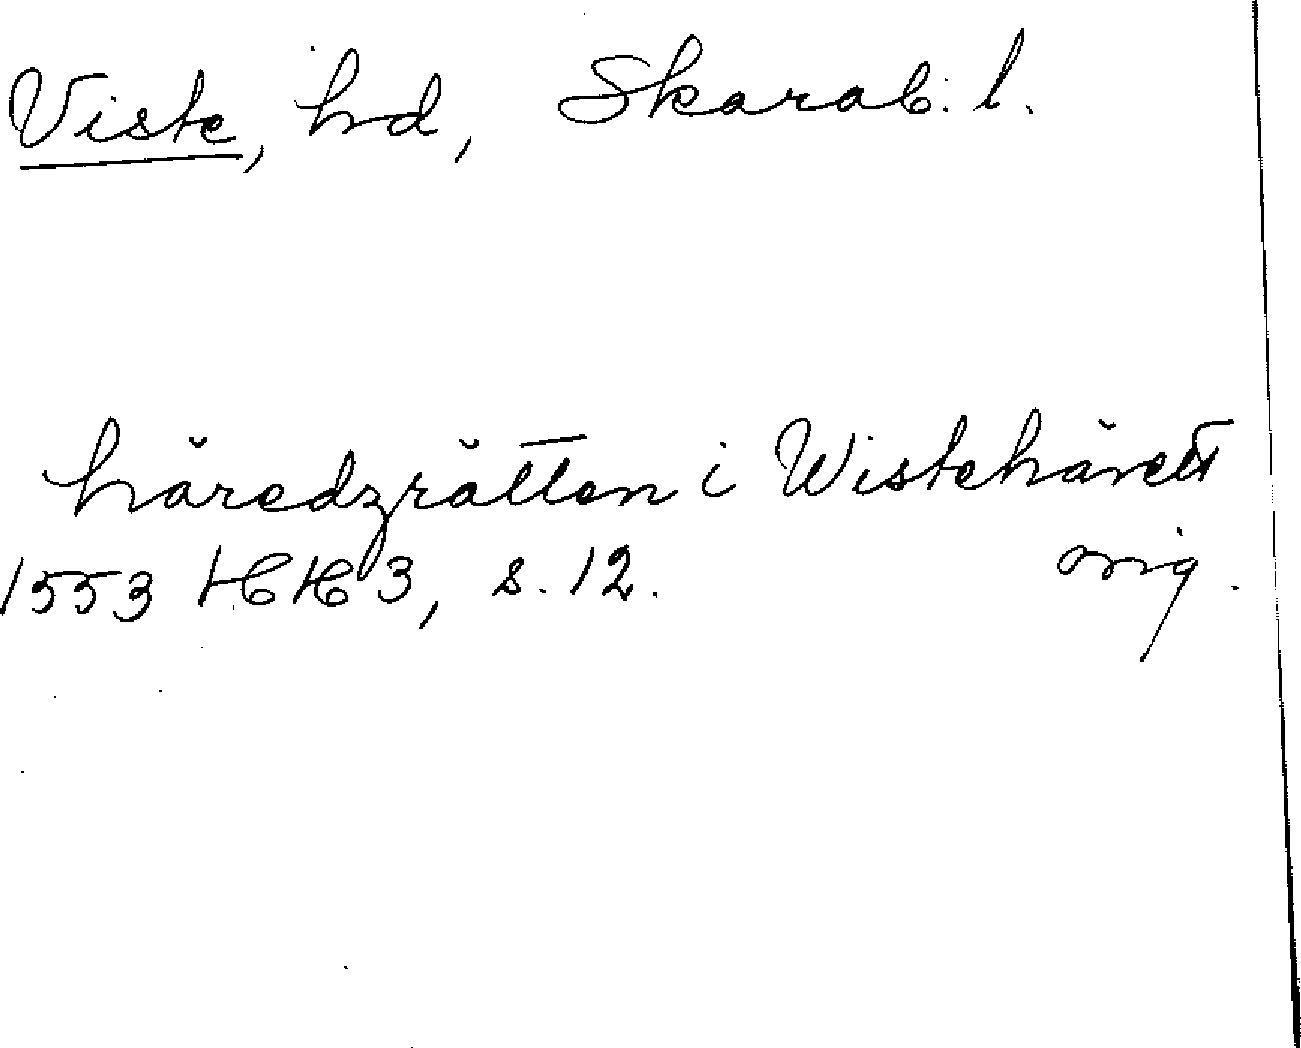 Viste, hd, Skarab. l.
häredzrätten i Wistehärett
1553 HH 3, s. 12. orig.